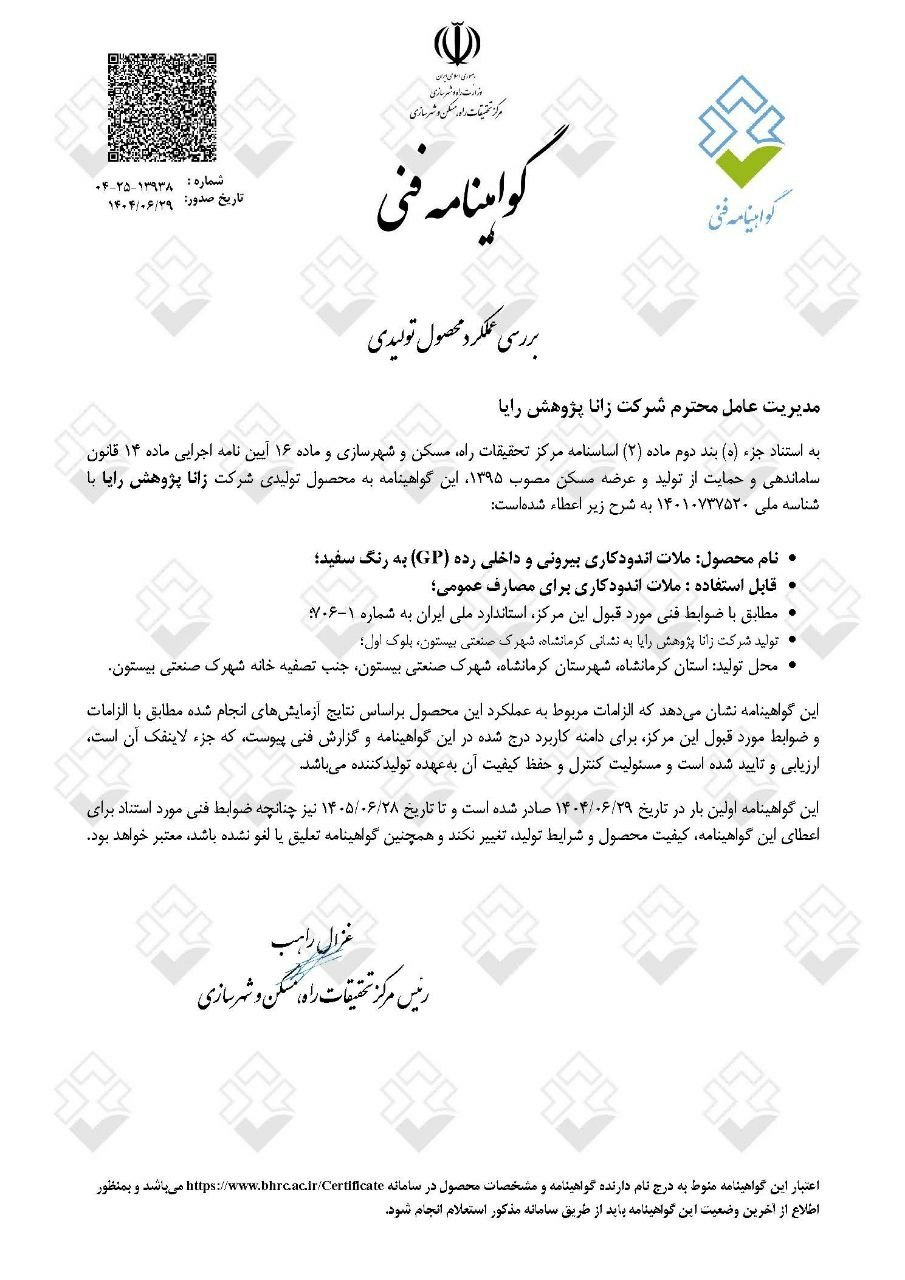 جمهوری اسلامی ایران
وزارت راه و شهرسازی
مرکز تحقیقات راه، مسکن و شهرسازی
گواهینامه فنی
گواهینامه فنی
شماره : ۰۴-۲۵-۱۳۹۳۸
تاریخ صدور: ۱۴۰۴/۰۶/۲۹
بررسی عملکرد محصول تولیدی
مدیریت عامل محترم شرکت زانا پژوهش رایا
به استناد جزء (ه) بند دوم ماده (۲) اساسنامه مرکز تحقیقات راه، مسکن و شهرسازی و ماده ۱۶ آیین نامه اجرایی ماده ۱۴ قانون
ساماندهی و حمایت از تولید و عرضه مسکن مصوب ۱۳۹۵، این گواهینامه به محصول تولیدی شرکت زانا پژوهش رایا با
شناسه ملی ۱۴۰۱۰۷۳۷۵۲۰ به شرح زیر اعطاء شده‌است:
• نام محصول: ملات اندودکاری بیرونی و داخلی رده (GP) به رنگ سفید؛
• قابل استفاده : ملات اندودکاری برای مصارف عمومی؛
• مطابق با ضوابط فنی مورد قبول این مرکز، استاندارد ملی ایران به شماره ۱-۷۰۶؛
• تولید شرکت زانا پژوهش رایا به نشانی کرمانشاه، شهرک صنعتی بیستون، بلوک اول؛
• محل تولید: استان کرمانشاه، شهرستان کرمانشاه، شهرک صنعتی بیستون، جنب تصفیه خانه شهرک صنعتی بیستون.
این گواهینامه نشان می‌دهد که الزامات مربوط به عملکرد این محصول براساس نتایج آزمایش‌های انجام شده مطابق با الزامات
و ضوابط مورد قبول این مرکز، برای دامنه کاربرد درج شده در این گواهینامه و گزارش فنی پیوست، که جزء لاینفک آن است،
ارزیابی و تایید شده است و مسئولیت کنترل و حفظ کیفیت آن به‌عهده تولیدکننده می‌باشد.
این گواهینامه اولین بار در تاریخ ۱۴۰۴/۰۶/۲۹ صادر شده است و تا تاریخ ۱۴۰۵/۰۶/۲۸ نیز چنانچه ضوابط فنی مورد استناد برای
اعطای این گواهینامه، کیفیت محصول و شرایط تولید، تغییر نکند و همچنین گواهینامه تعلیق یا لغو نشده باشد، معتبر خواهد بود.
غزال راهب
رئیس مرکز تحقیقات راه، مسکن و شهرسازی
اعتبار این گواهینامه منوط به درج نام دارنده گواهینامه و مشخصات محصول در سامانه https://www.bhrc.ac.ir/Certificate می‌باشد و بمنظور
اطلاع از آخرین وضعیت این گواهینامه باید از طریق سامانه مذکور استعلام انجام شود.